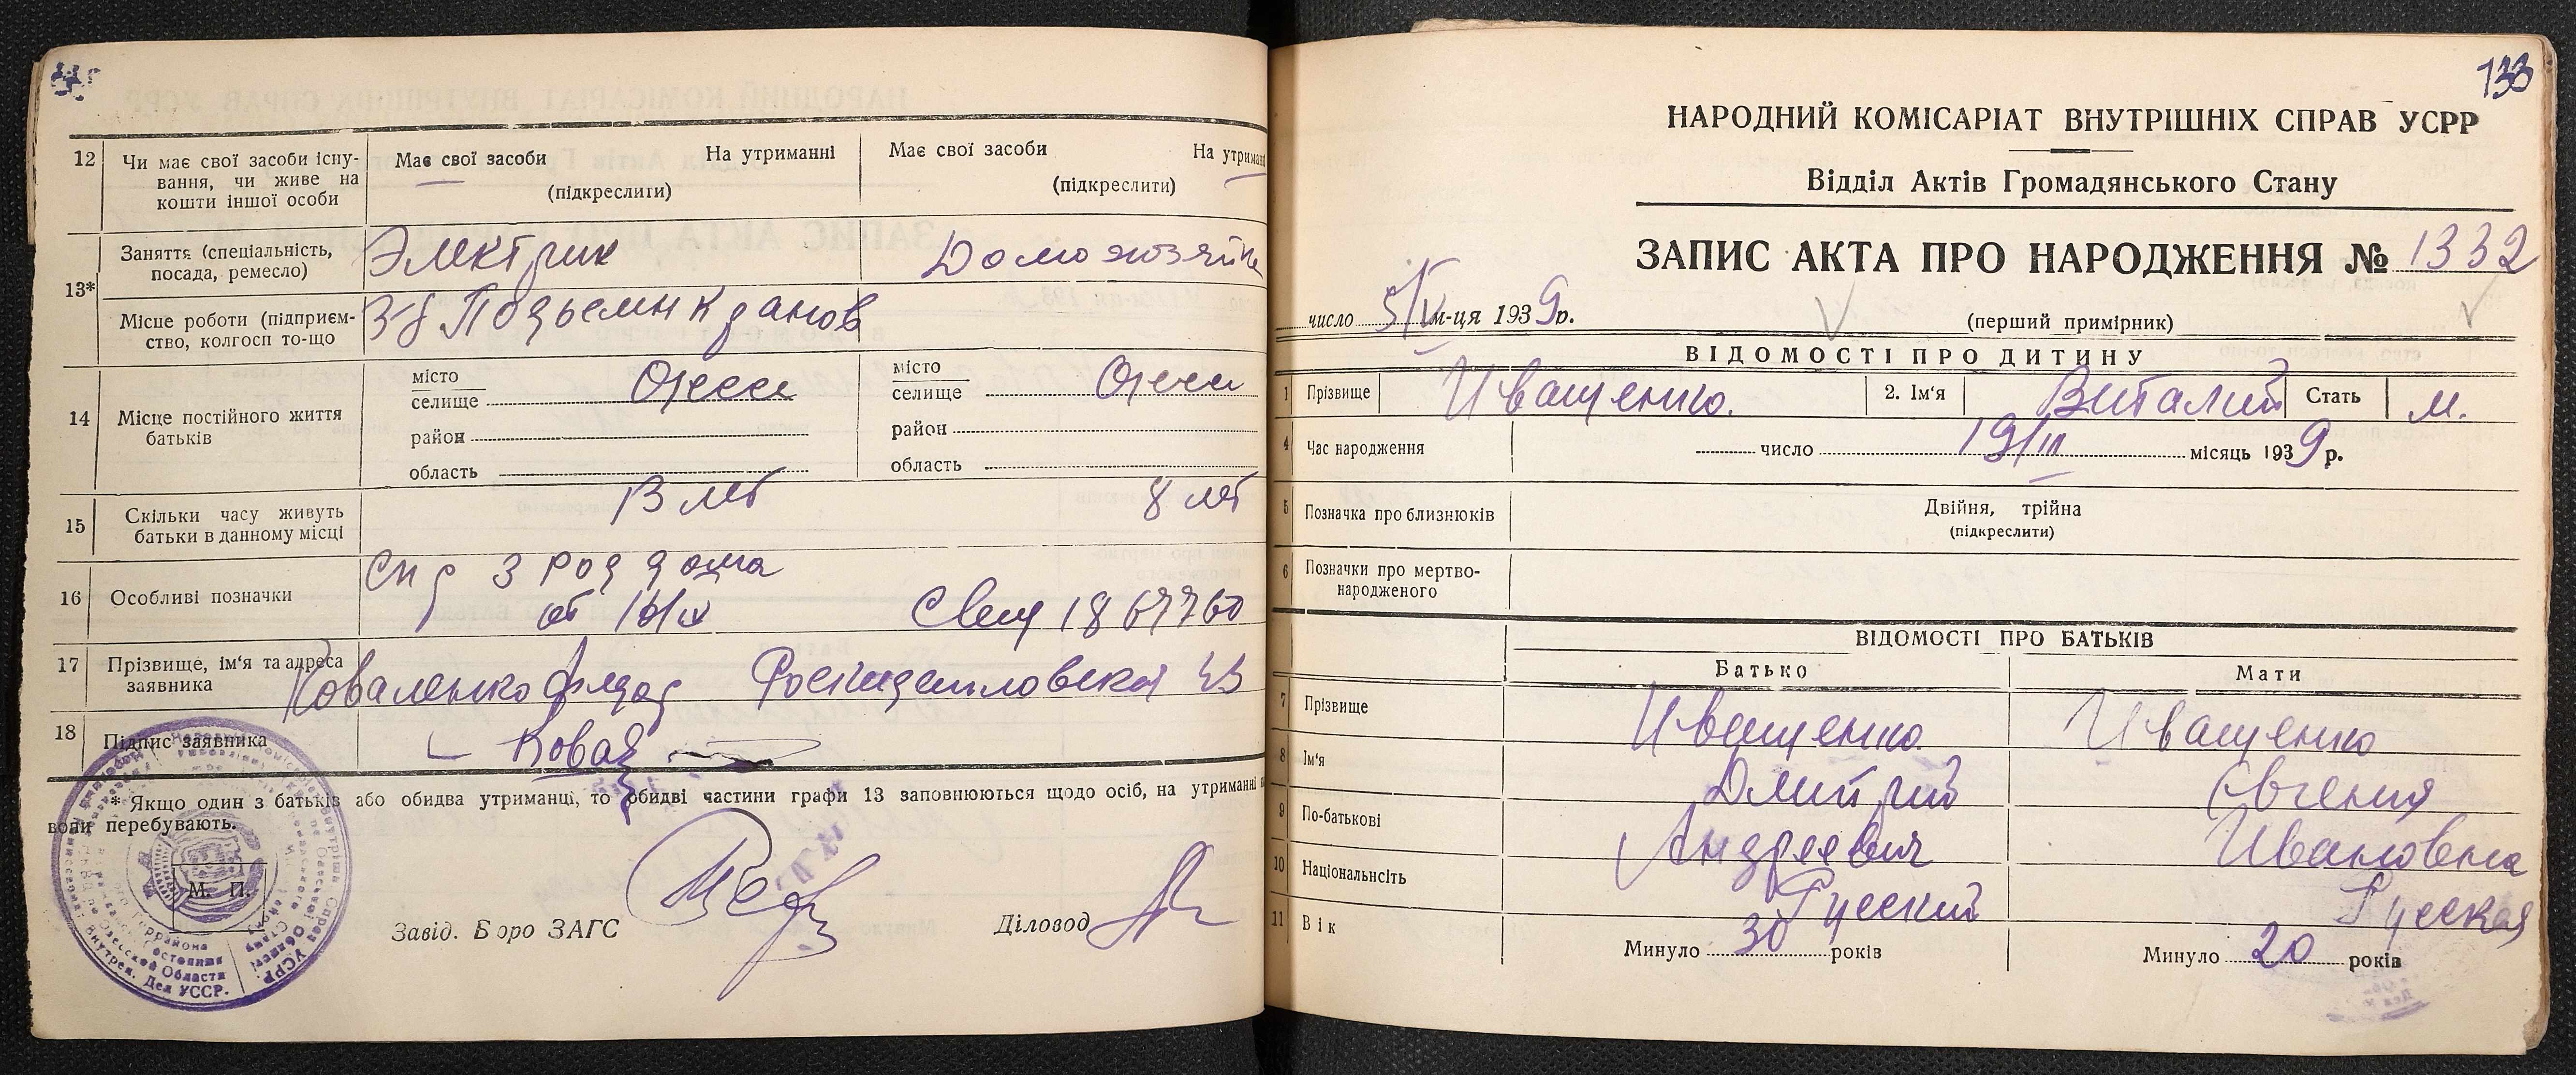 12 Чи має свої засоби існу-
вання, чи живе на
кошти іншої особи
Має свої засоби На утриманні
(підкреслити)
Має свої засоби На утриманні
(підкреслити)
13*
Заняття (спеціальність,
посада, ремесло)
Электрик Домохозяйка
Місце роботи (підприєм-
ство, колгосп то-що
З-д Подъемн кранов
14 Місце постійного життя
батьків
місто
селище Одесса
район
область
місто
селище Одесса
район
область
15 Скільки часу живуть
батьки в данному місці
13 лет 8 лет
16 Особливі позначки
Спр 3 род дома
от Свид 1867760
17 Прізвище, ім'я та адреса
заявника
Коваленко
18 Підпис заявника
Ковал
* Якщо один з батьків або обидва утриманці, то обидві частини графи 13 заповнюються щодо осіб, на утриманні
вони перебувають.
М. П.
Завід. Бюро ЗАГС
Діловод
133
НАРОДНИЙ КОМІСАРІАТ ВНУТРІШНІХ СПРАВ УСРР
Відділ Актів Громадянського Стану
ЗАПИС АКТА ПРО НАРОДЖЕННЯ № 1332
число 5/IV м-ця 1939р.
(перший примірник)
ВІДОМОСТІ ПРО ДИТИНУ
1 Прізвище Иващенко. 2. Ім'я Виталий Стать м.
4 Час народження число 19/III місяць 1939 р.
5 Позначка про близнюків
Двійня, трійна
(підкреслити)
6 Позначки про мертво-
народженого
ВІДОМОСТІ ПРО БАТЬКІВ
Батько Мати
7 Прізвище Иващенко Иващенко
8 Ім'я Дмитрий Евгения
9 По-батькові Андреевич Ивановна
10 Національність Русский Русская
11 Вік Минуло 30 років Минуло 20 років